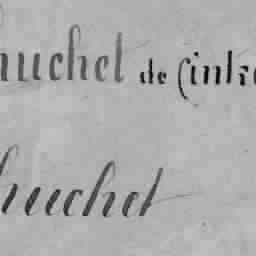 huchet de Cink
huchet